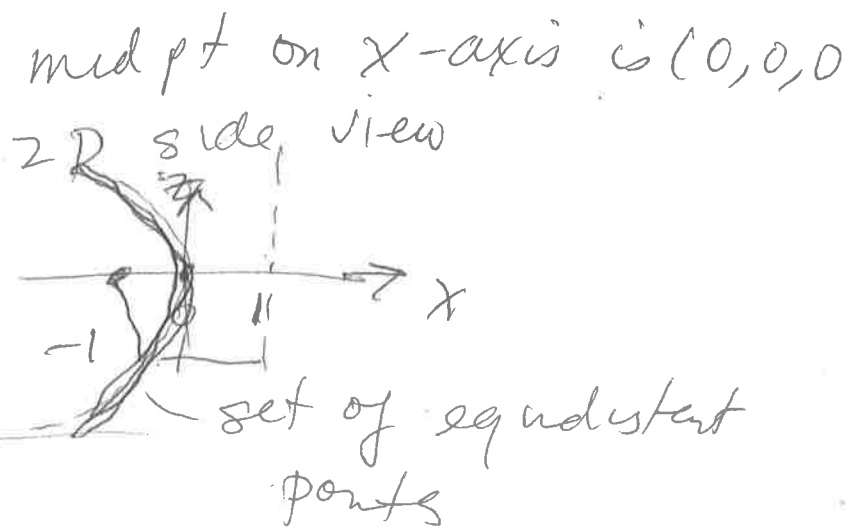 mid pt on x-axis is (0,0,0
2D side view
z
0
1
x
-1
set of equidistant
points